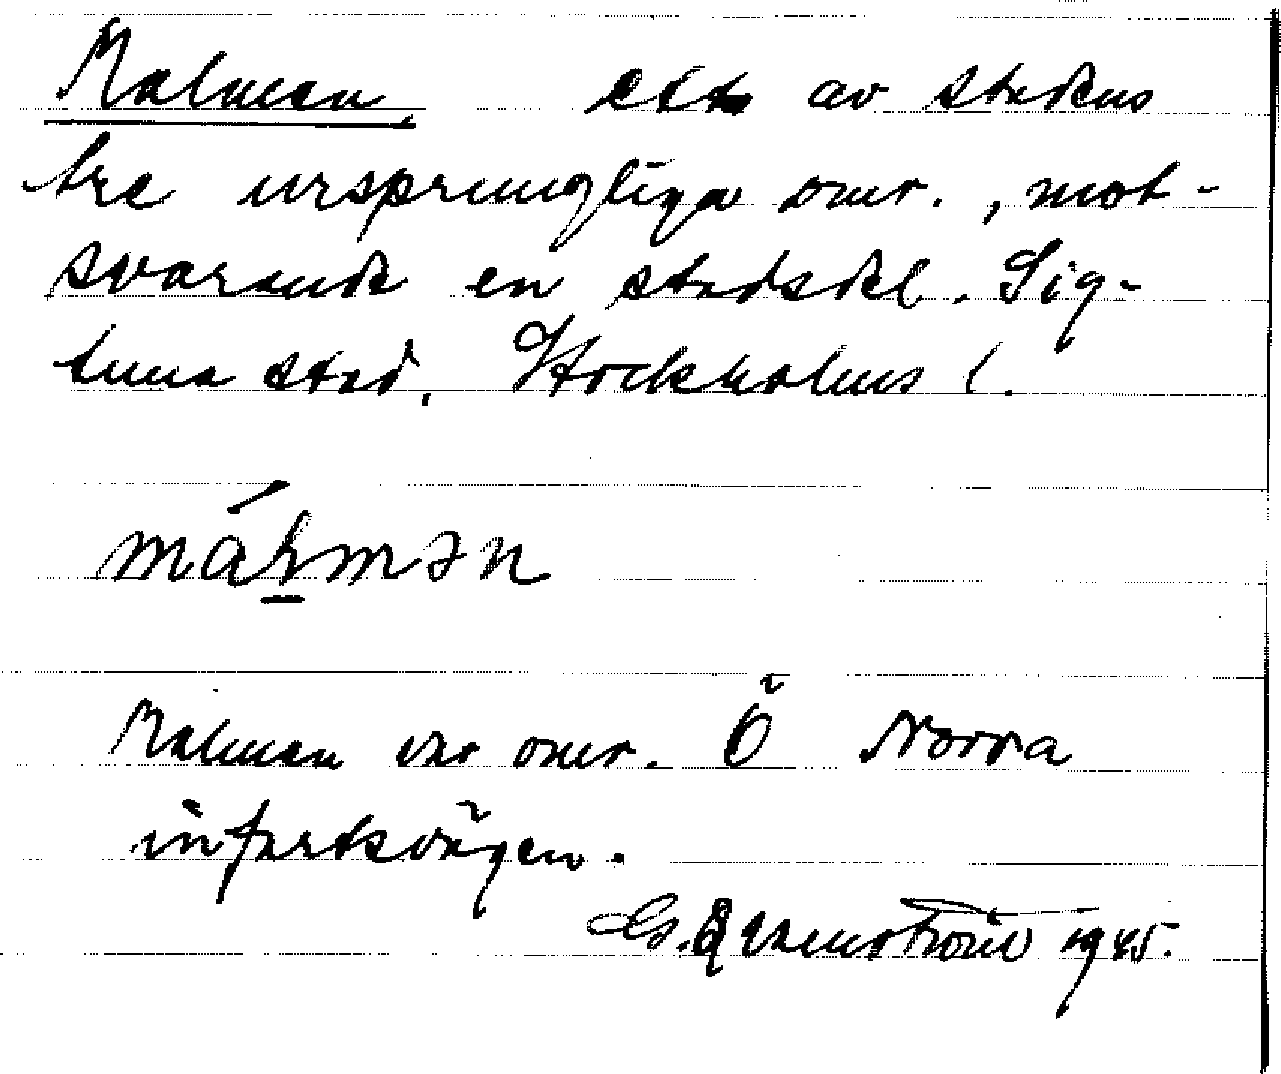 Malmen, ett av stadens
tre ursprungliga områ., mot-
svarande en stadsdel. Sig-
tuna stad, Stockholms l.
málmən
Malmen var områ. Ö Norra
infartsvägen.
G. Qvarnström 1945.